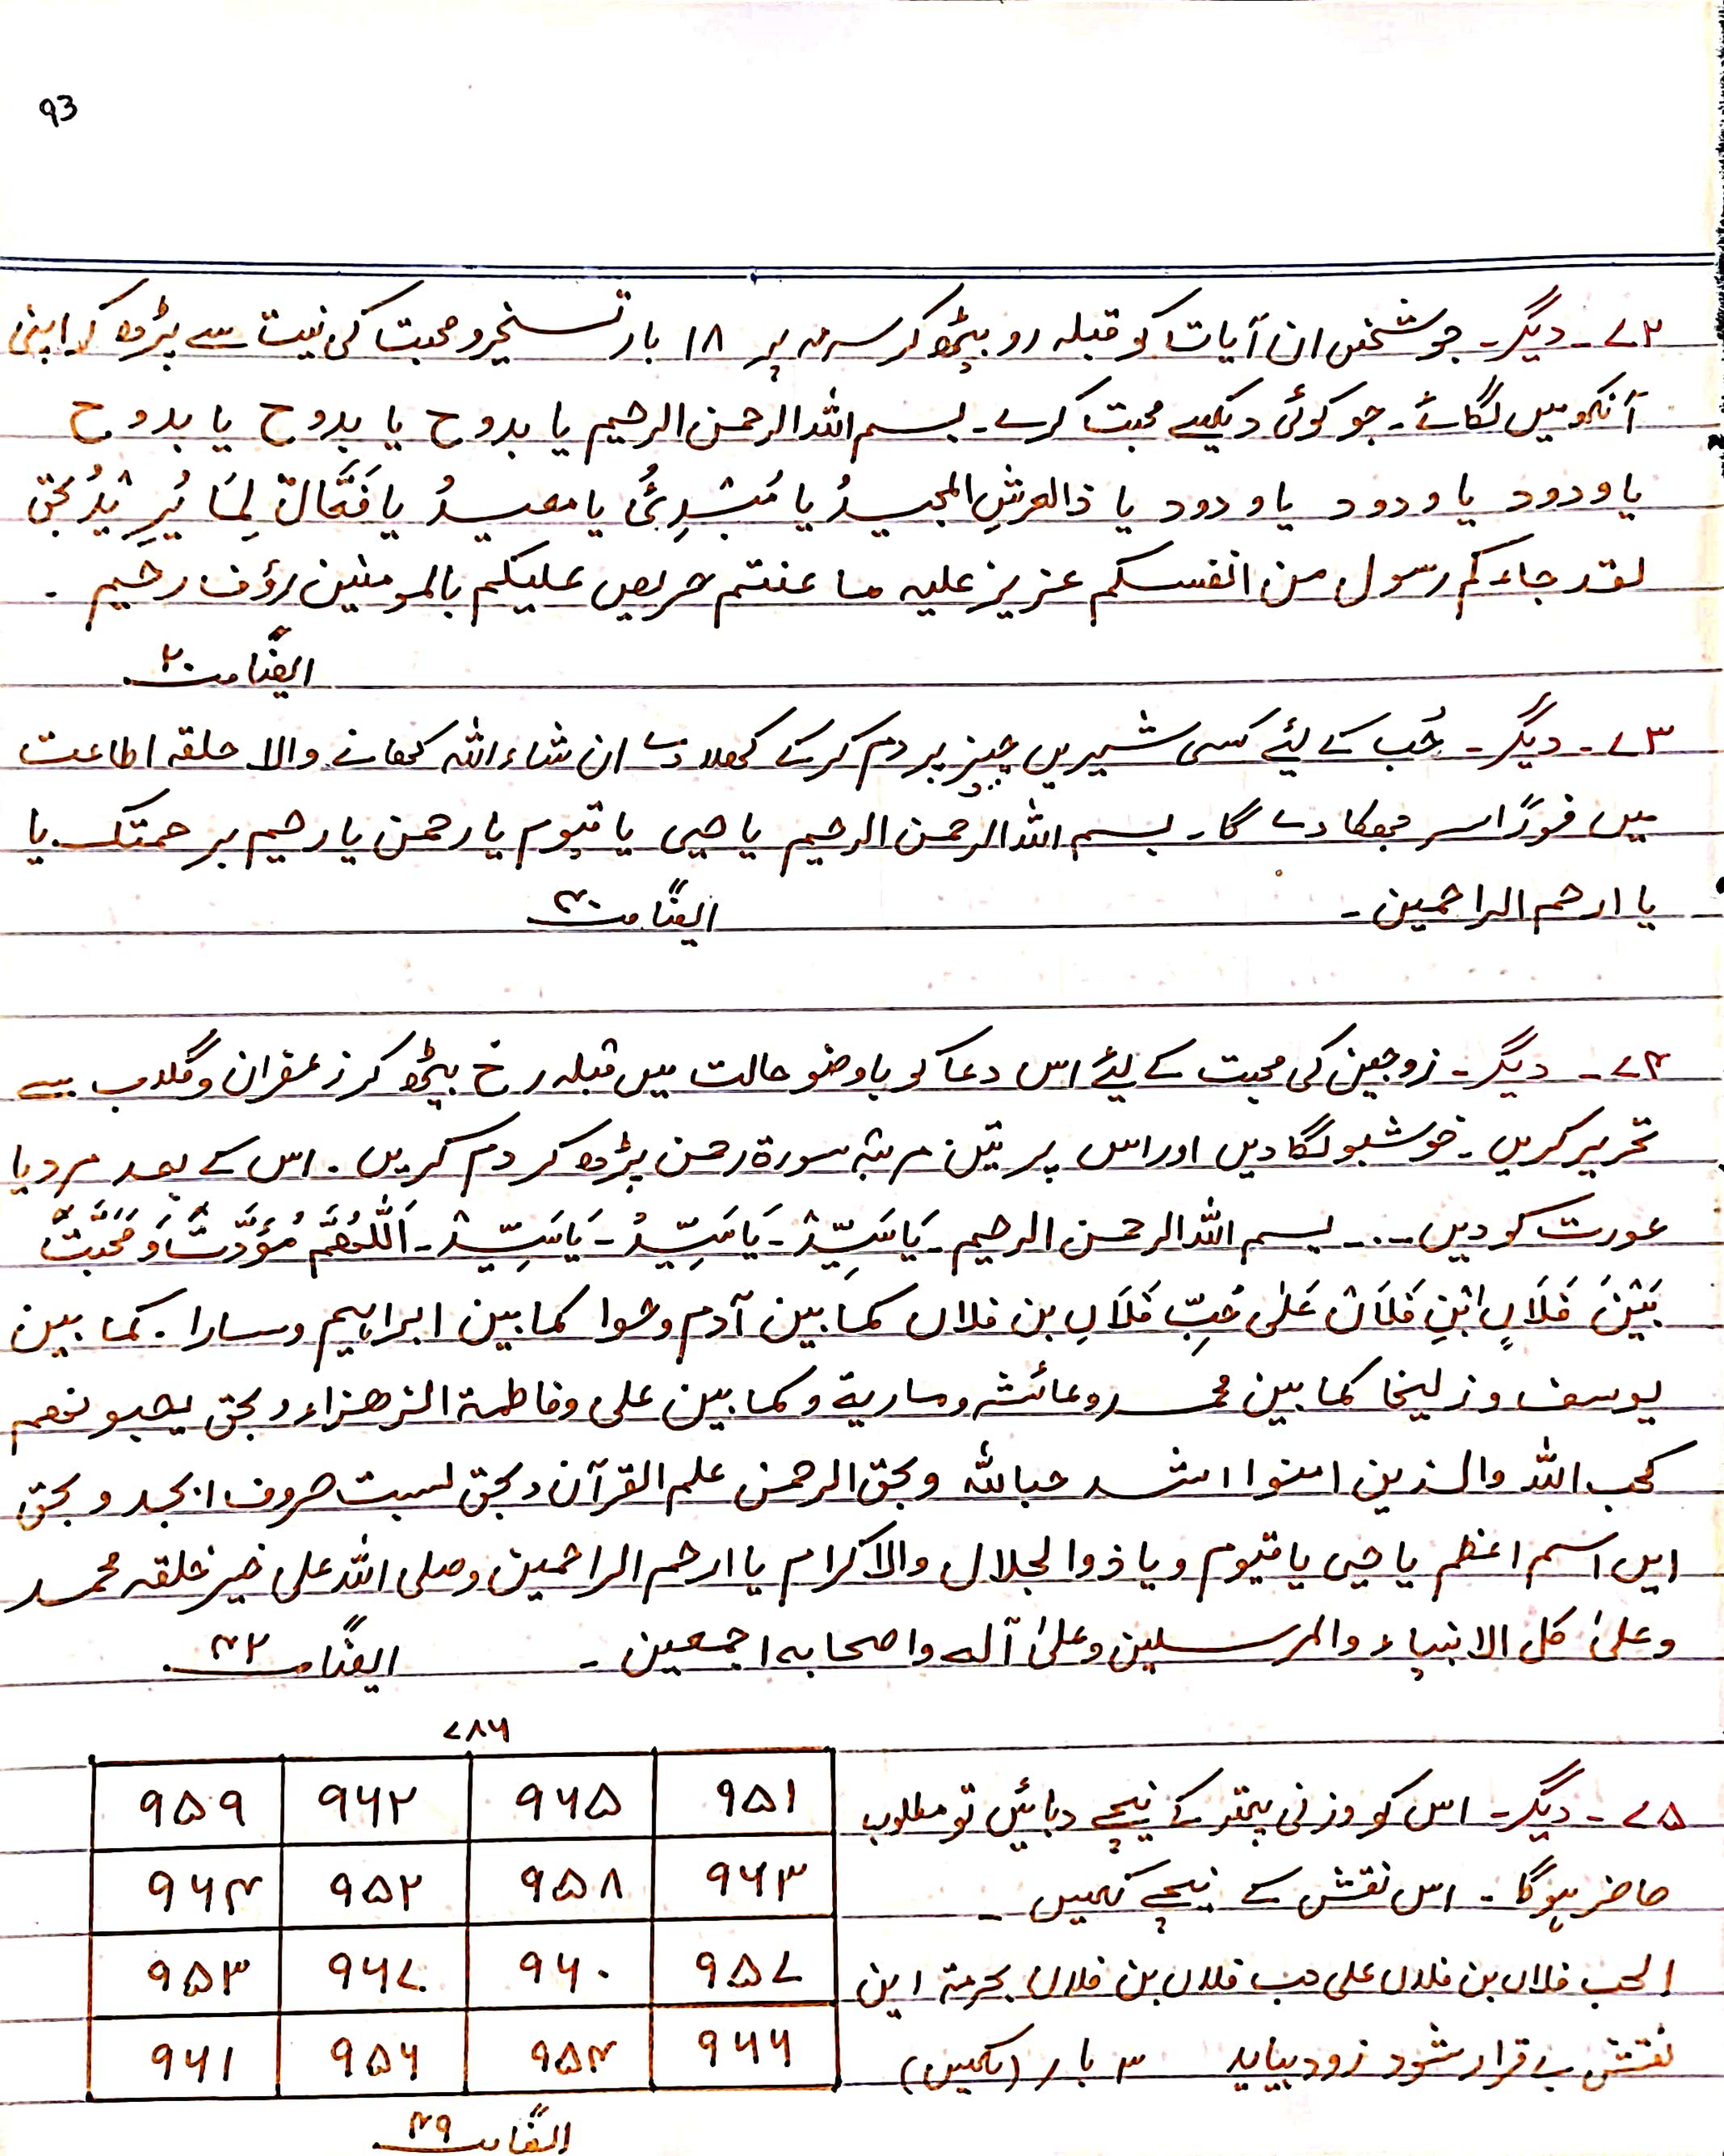 93
۷۲۔ دیگر۔ جو شخص ان آیات کو قبلہ رو بیٹھ کر سرمہ پر ۱۸ بار تسخیر و محبت کی نیت سے پڑھ کر اپنی
آنکھ میں لگائے۔ جو کوئی دیکھے محبت کرے۔ بسم اللہ الرحمن الرحیم یا بدوح یا بدوح یا بدوح
یا ودود یا ودود یا ودود یا ذالعرشِ المجیدُ یا مُبْدِئُ یا معیدُ یا فَعَّالٌ لِمَا یُرِیْدُ بحق
لقد جاءکم رسول من انفسکم عزیز علیہ ما عنتم حریص علیکم بالمومنین رؤف رحیم ۔
ایضاً صـ ۲۰
۷۳۔ دیگر۔ حُب کے لئے کسی شیریں چیز پر دم کر کے کھلا دے ان شاء اللہ کھانے والا حلقہ اطاعت
میں فوراً سر جھکا دے گا۔ بسم اللہ الرحمن الرحیم یا حیی یا قیوم یا رحمن یا رحیم برحمتک یا
یا ارحم الراحمین ۔ ایضاً صـ ۴۰
۷۴۔ دیگر۔ زوجین کی محبت کے لئے اس دعا کو باوضو حالت میں قبلہ رخ بیٹھ کر زعفران و گلاب سے
تحریر کریں۔ خوشبو لگا دیں اور اس پر تین مرتبہ سورۃ رحمن پڑھ کر دم کریں۔ اس کے بعد مرد یا
عورت کو دیں ۔۔۔ بسم اللہ الرحمن الرحیم۔ یَا سَیِّدُ۔ یَا سَیِّدُ۔ یَا سَیِّدُ۔ اَللّٰھُمَّ مُؤَدَّتً وَ مَحَّبَتً
بَیْنَ فَلَاںِ ابْنِ فَلَاں عَلٰی حُبِّ فَلَاںِ بن فلاں کما بین آدم و حوا کما بین ابراہیم و سارا۔ کما بین
یوسف و زلیخا کما بین محمد و عائشہ و ماریۃ و کما بین علی و فاطمۃ الزھراء و بحق یحبونھم
کحب اللہ والذین امنوا اشد حباللہ و بحق الرحمن علم القرآن و بحق لسبت حروف ابجد و بحق
ایں اسم اعظم یا حیی یا قیوم و یا ذوالجلال والاکرام یا ارحم الراحمین و صلی اللہ علی خیر خلقہ محمد
و علیٰ کل الانبیاء والمرسلین و علیٰ آلہ و اصحابہ اجمعین ۔ ایضاً صـ ۴۲
۷۸۶
۷۵۔ دیگر۔ اس کو وزنی پتھر کے نیچے دبائیں تو مطلوب
حاضر ہوگا۔ اس نقش کے نیچے لکھیں ۔
الحب فلاں بن فلاں علی حب فلاں بن فلاں بحرمۃ این
نقش بے قرار شود زود بیاید ۳ بار (لکھیں)
۹۵۱ ۹۶۵ ۹۶۲ ۹۵۹
۹۶۳ ۹۵۸ ۹۵۲ ۹۶۴
۹۵۷ ۹۶۰ ۹۶۷ ۹۵۳
۹۶۶ ۹۵۴ ۹۵۶ ۹۶۱
ایضاً صـ ۴۹